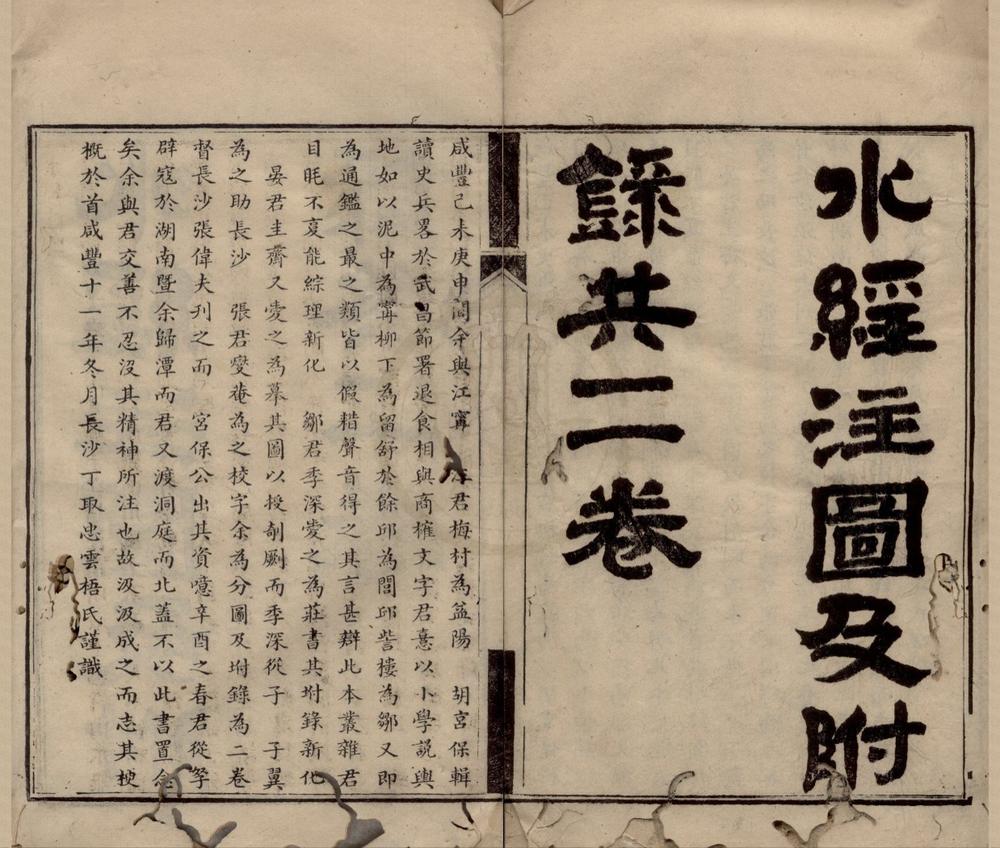 水經注圖及附
錄共二卷
咸豐己未庚申間余與江甯 君梅村為益陽 胡宮保輯
讀史兵畧於武昌節署退食相與商榷文字君意以小學說輿
地如以泥中為甯柳下為留舒於餘邱為閭邱訾樓為鄒又即
為通鑑之最之類皆以假糌聲音得之其言甚辯此本叢雜君
目眊不夏能綜理新化 鄒君季深愛之為莊書其坿錄新化
晏君圭齋又愛之為摹其圖以授剞劂而季深從子 子翼
為之助長沙 張君燮菴為之校字余為分圖及坿錄為二卷
督長沙張偉夫刊之而 宮保公出其資噫辛酉之春君從孥
辟寇於湖南暨余歸潭而君又渡洞庭而北蓋不以此書置念
矣余與君交善不忍沒其精神所注也故汲汲成之而志其梗
概於首咸豐十一年冬月長沙丁取忠雲梧氏謹識